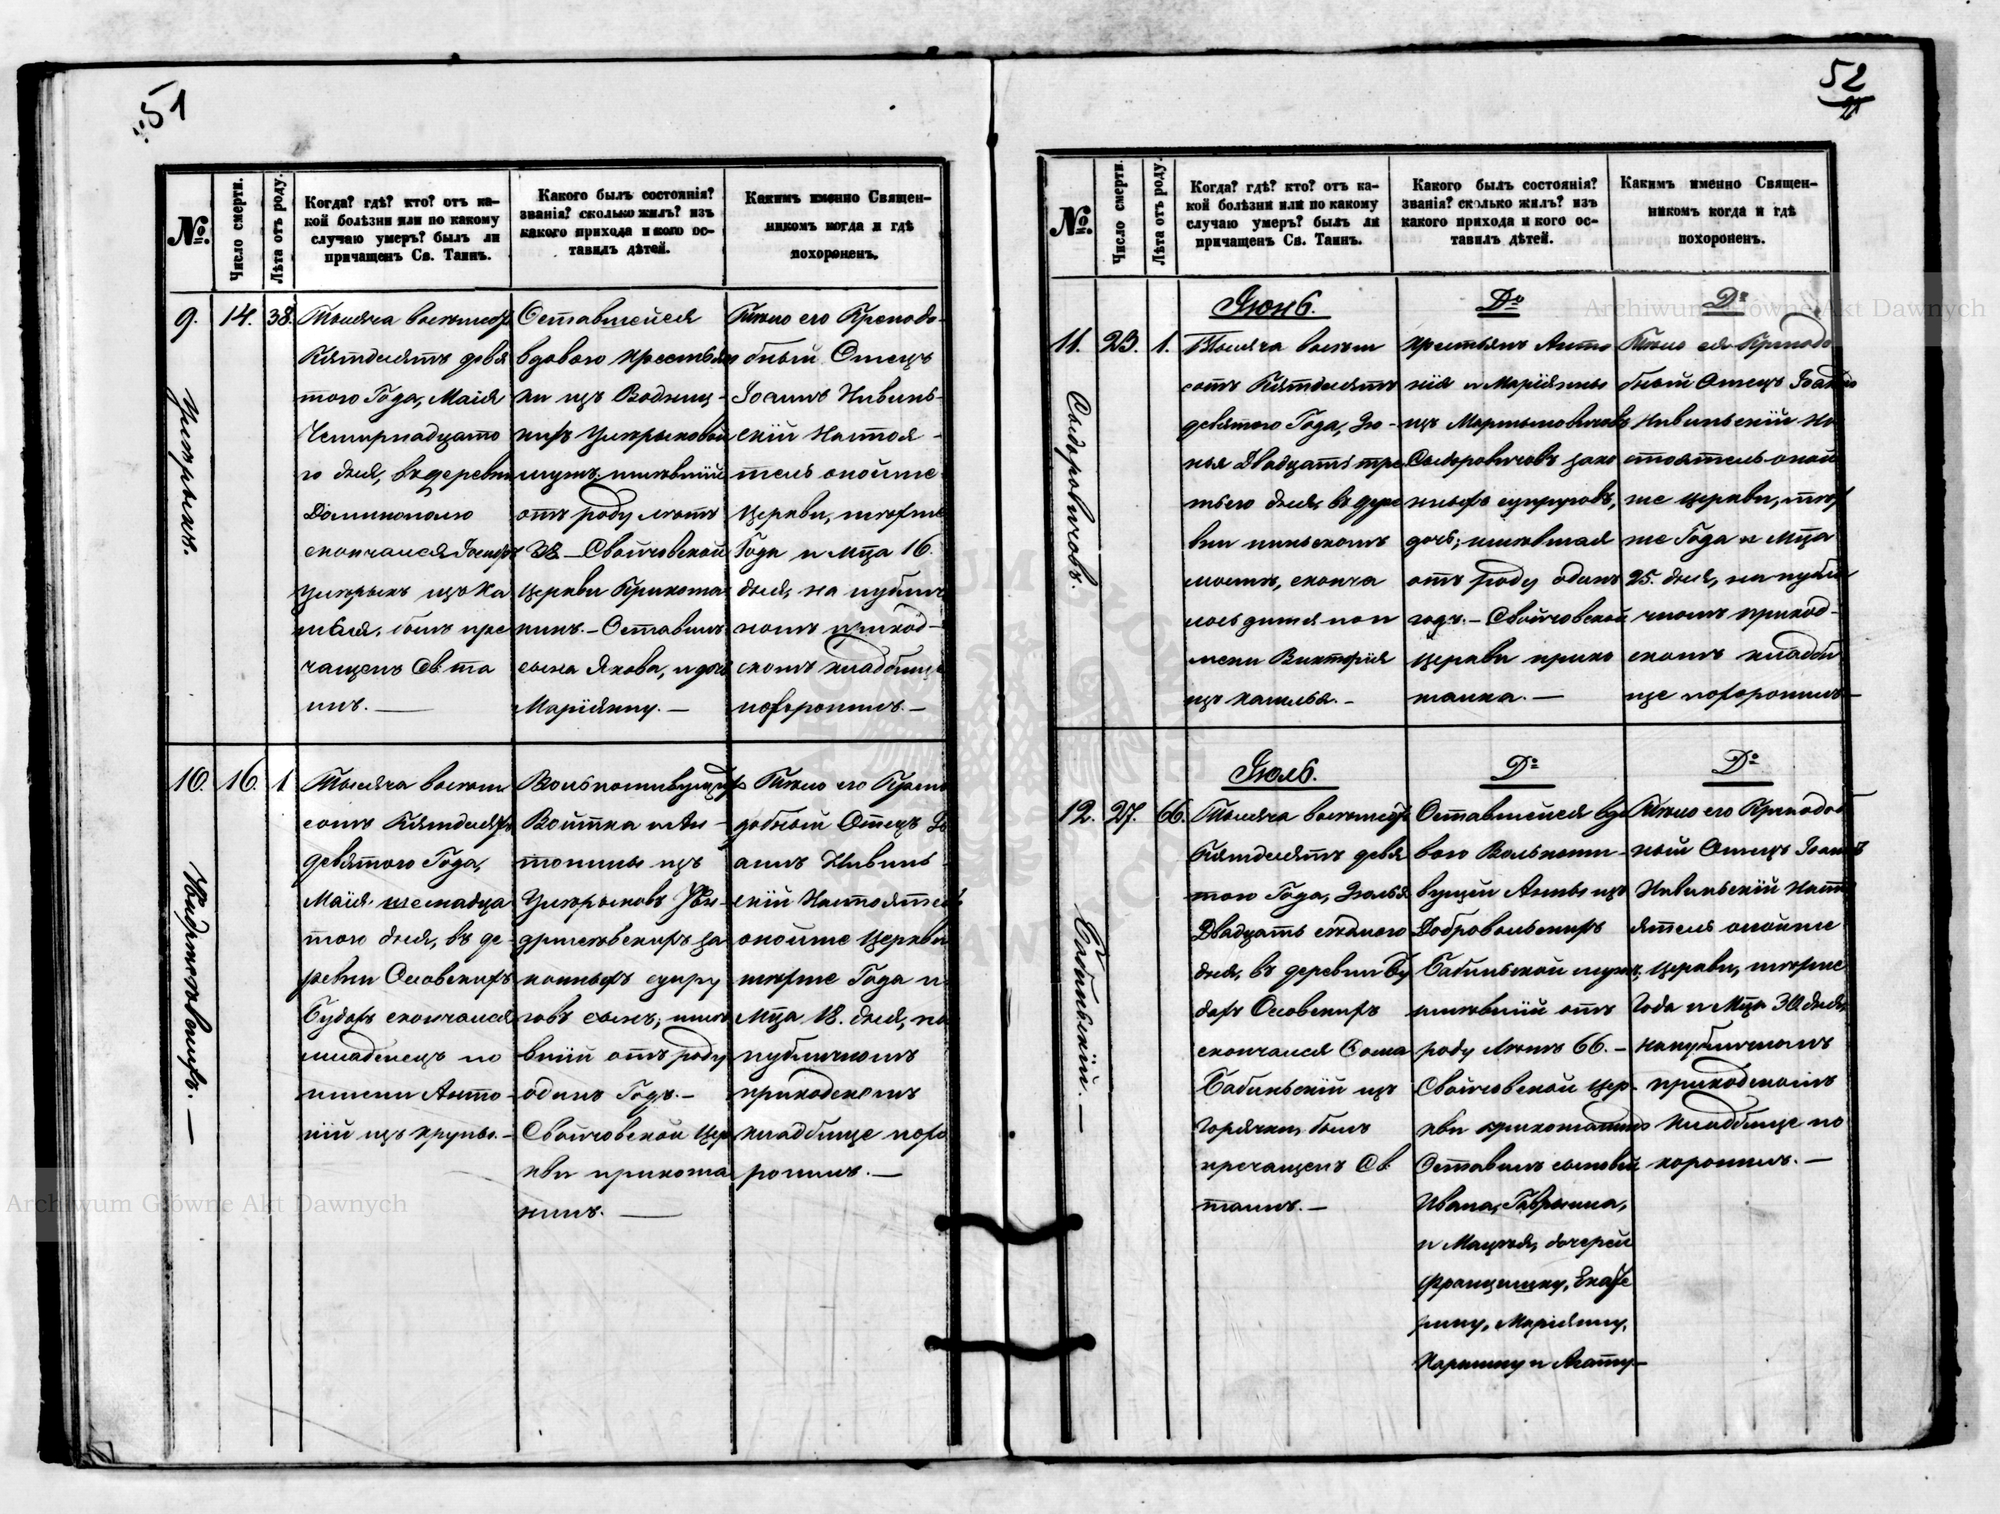 51
№.
Число смерти.
Лѣта отъ роду.
Когда? гдѣ? кто? отъ ка-
кой болѣзни или по какому
случаю умеръ? былъ ли
причащенъ Св. Таинъ.
Какого былъ состоянія?
званія? сколько жилъ? изъ
какого прихода и кого ос-
тавилъ дѣтей.
Какимъ именно Священ-
никомъ когда и гдѣ
похороненъ.
9.
14.
38.
Тысяча восемсотъ
Пятдесятъ девя
того Года, Маія
Четырнадцато
го дня, въ деревни
Доминополю
скончался Іосифъ
изъ ка
шля, былъ пре
чащенъ Св. та
инъ. —
Оставшейся
вдовою крестьян
ки изъ Водниц-
кихъ
мужъ, жившій
отъ роду лѣтъ
38 — Свойчовской
Церкви Прихожа
нинъ. — Оставилъ
сына Якова, и дочь
Маріянну. —
Тѣло его Преподо-
бный Отецъ
Іоаннъ Нивинь-
скій Настоя-
тель оной же
Церкви, тогоже
Года и Мца 16.
дня, на публич
номъ приход-
скомъ кладбище
похоронилъ. —
10.
16.
1
Тысяча восем
сотъ Пятдесятъ
девятого Года,
Маія шеснадца
того дня, въ де-
ревни Осовскихъ
Будахъ скончался
младенецъ по
имени Анто-
ній изъ крупы. —
Вольноживущихъ
Войтка и Ан-
тонины изъ
за
конныхъ супру
говъ сынъ; жи
вшій отъ роду
одинъ Годъ. —
Свойчовской Цер
кви прихожа
нинъ. —
Тѣло его Препо
добный Отецъ Іо
аннъ Нивинь-
скій Настоятель
оной же Церкви
тогоже Года и
Мца 18. дня, на
публичномъ
приходскомъ
кладбище похо
ронилъ. —
Archiwum Główne Akt Dawnych
52
№.
Число смерти.
Лѣта отъ роду.
Когда? гдѣ? кто? отъ ка-
кой болѣзни или по какому
случаю умеръ? былъ ли
причащенъ Св. Таинъ.
Какого былъ состоянія?
званія? сколько жилъ? изъ
какого прихода и кого ос-
тавилъ дѣтей.
Какимъ именно Священ-
никомъ когда и гдѣ
похороненъ.
Archiwum Główne Akt Dawnych
Іюнь.
До
До
11.
23.
1.
Сидоровичовъ.
Тысяча восем
сотъ Пятдесятъ
девятого Года, Ію-
ня Двадцать тре
тьего дня, въ дере
вни
мостѣ, сконча
лось дитя по и
мени Викторія
изъ кашля. —
крестьянъ Анто
нія и Маріянны
изъ Мартыновичовъ
Сидоровичовъ зако
нныхъ супруговъ,
дочь; жившая
отъ роду одинъ
годъ. — Свойчовской
Церкви прихо
жанка. —
Тѣло ея Преподо
бный Отецъ Іоаннъ
Нивиньскій На
стоятель оной
же Церкви, того
же Года и Мца
25. дня, на публи
чномъ приход-
скомъ кладби
ще похоронилъ —
Іюль.
До
До
12.
27.
66.
Бабиньскій. —
Тысяча восемсотъ
Пятдесятъ девя
того Года, Іюля
Двадцать седмого
дня, въ деревни Бу
дахъ Осовскихъ
скончался Фома
Бабиньскій изъ
горячки, былъ
пречащенъ Св.
таинъ. —
Оставшейся вдо
вою Вольножи-
вущей Анны изъ
Добровольскихъ
Бабиньской мужъ,
жившій отъ
роду лѣтъ 66. —
Свойчовской Цер-
кви прихожанинъ
Оставилъ сыновей
Ивана, Гаврыила,
и Мацѣя, дочерей
Францишку, Екате
рину, Маріянну,
Карлину и Агату —
Тѣло его Преподоб
ный Отецъ Іоаннъ
Нивиньскій Насто
ятель оной же
Церкви, тогоже
Года и Мца 30. дня,
на публичномъ
приходскомъ
кладбище по
хоронилъ. —